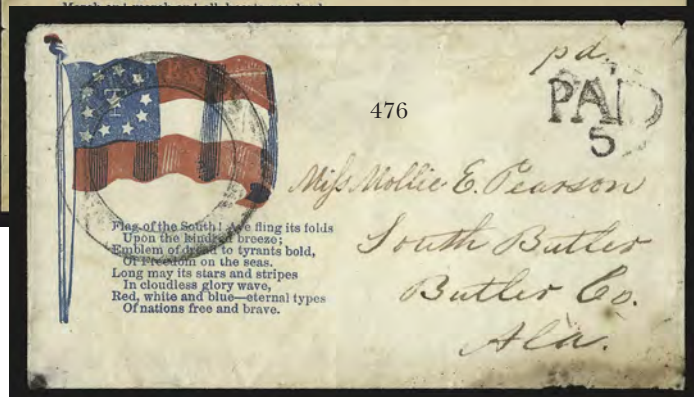 pd.
PAID
5
476
Miss Mollie E. Pearson
South Butler
Butler Co.
Ala.
Flag of the South! Aye fling its folds
Upon the kindred breeze;
Emblem of dread to tyrants bold,
Of Freedom on the seas.
Long may its stars and stripes
In cloudless glory wave,
Red, white and blue—eternal types
Of nations free and brave.